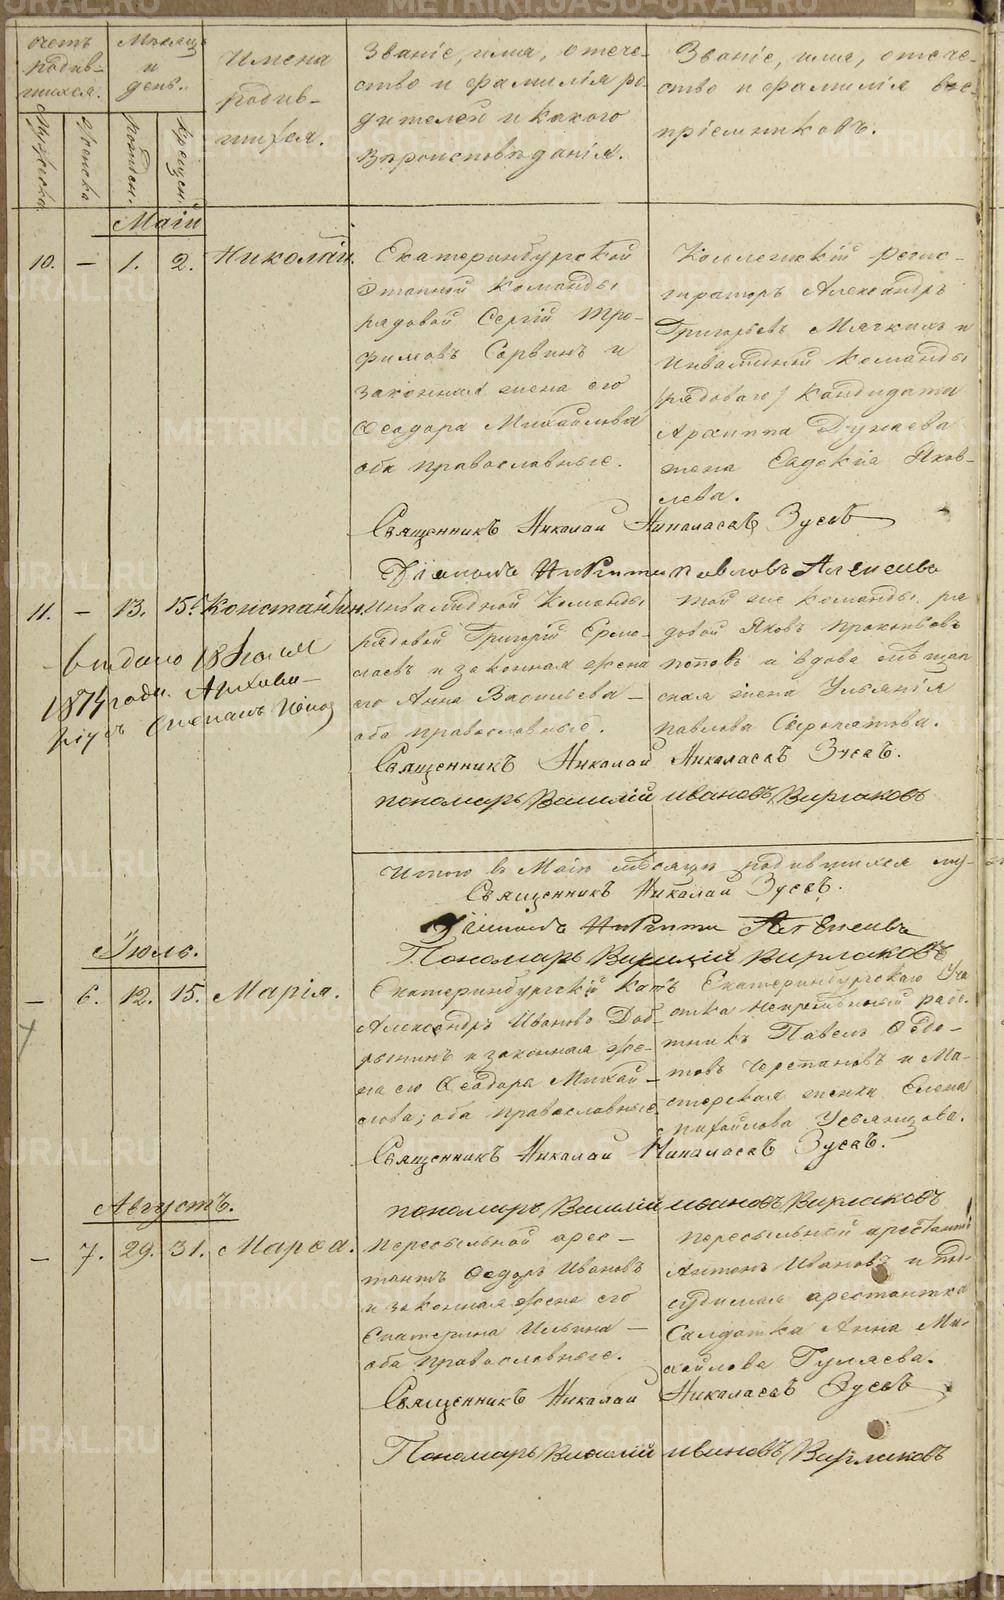 Счетъ родив-
шихся.
Мужеска.
Женска
Мѣсяцъ
и
день.
рожден.
крещен.
Имена
родив-
шихся.
Званіе, имя, отече-
ство и фамилія ро-
дителей и какого
вѣроисповѣданія.
Званіе, имя, отече-
ство и фамилія вос-
пріемниковъ.
Маій
10. — 1. 2. Николай.
Екатеринбургской
этапной команды
рядовой Сергій Тро-
фимовъ Сорвинъ и
законная жена его
Ѳеодора Михайлова
оба православные.
Коллежскій регис-
траторъ Александръ
Григорьевъ Мячкинъ и
инвалидной команды
рядоваго / кандидата
Архиппа Дунаева
жена Евдокіа Яков-
лева.
Священникъ Николай Николаевъ Зуевъ
Діаконъ Никита Павловъ Алексѣевъ
11. — 13. 15. Константин.
Инвалидной команды
рядовой Григорій Ермо-
лаевъ и законная жена
его Анна Васильева —
оба православные.
той же команды ря-
довой Яковъ Прокопьевъ
Поповъ и вдова мѣщан
ская жена Ульянія
Павлова
Выдано 18 Іюля
1874 года.
Священникъ Николай Николаевъ Зуевъ.
Пономарь Василій Ивановъ Вирлаковъ
Итого въ Маіѣ мѣсяцѣ родившихся му-
Священникъ Николай Зуевъ.
Діаконъ Никита Алексѣевъ
Пономарь Василій Вирлаковъ
Іюль.
— 6. 12. 15. Марія.
Екатеринбургскій
Александръ Ивановъ Доб-
рынинъ и законная же-
на его Ѳеодора Михай-
лова; оба православные
Екатеринбургскаго
непремѣнный рабо-
тникъ Павелъ Ѳедо-
товъ Черепановъ и Ма-
стерская женка Елена
Михайлова Усьянцова.
Священникъ Николай Николаевъ Зуевъ.
Пономарь Василій Ивановъ Вирлаковъ
Августъ.
— 7. 29. 31. Марѳа.
Пересыльной арес-
тантъ Ѳедоръ Ивановъ
и законная жена его
Екатерина Ильина —
оба православные.
Пересыльный арестантъ
Антонъ Ивановъ и под-
судимая арестантка
Солдатка Анна Ми-
хайлова Гуляева.
Священникъ Николай Николаевъ Зуевъ
Пономарь Василій Ивановъ Вирлаковъ
METRIKI.GASO-URAL.RU